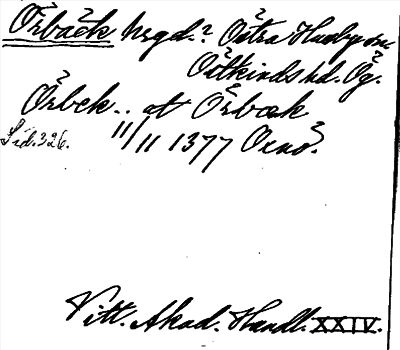 Örbäck hrgd.? Östra Husby sn.
Östkinds hd. Ög.
Örbek.. at Örbæk
Sid. 326. 11/11 1377 Oxnö.
Vitt. Akad. Handl. XXIV.